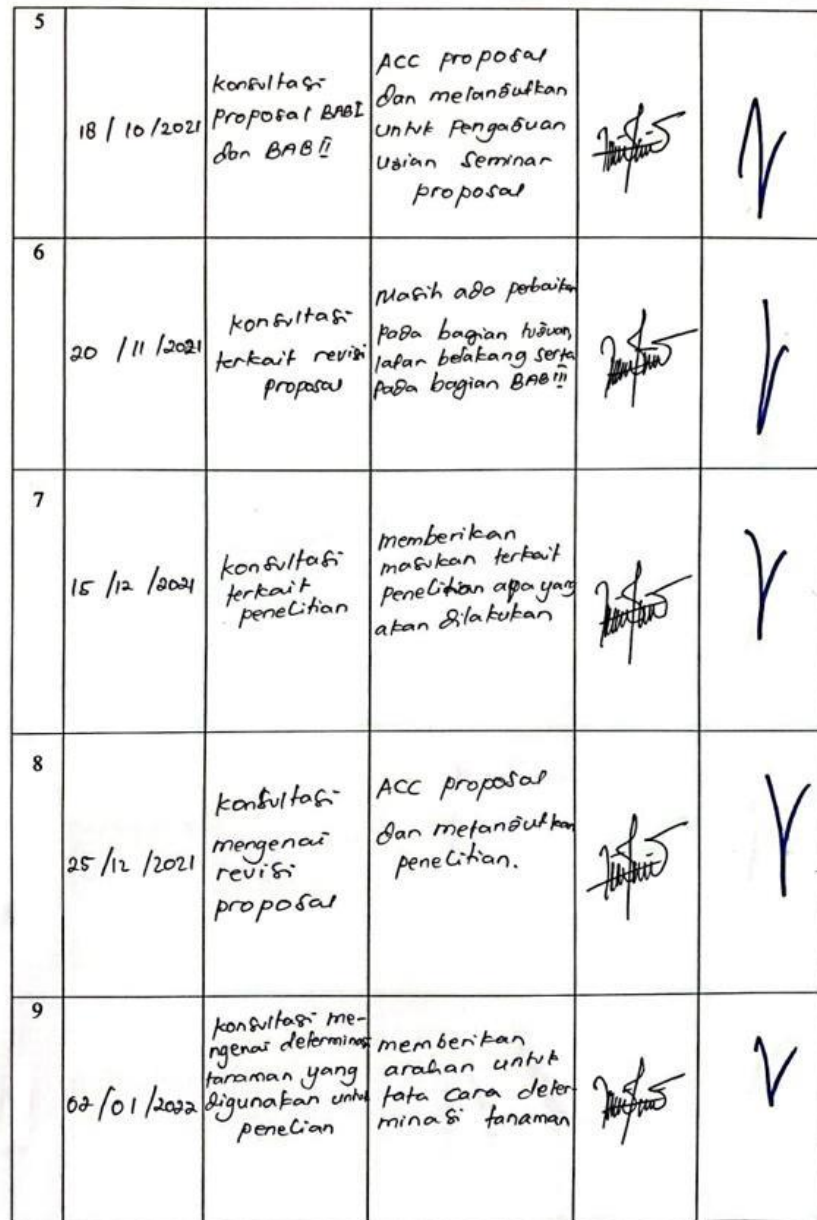 5
18 / 10 / 2021
konsultasi
proposal BAB I
dan BAB II
ACC proposal
dan melanjutkan
untuk pengajuan
ujian seminar
proposal
6
20 / 11 / 2021
konsultasi
terkait revisi
proposal
Masih ada perbaikan
pada bagian tujuan,
latar belakang serta
pada bagian BAB III
7
15 / 12 / 2021
konsultasi
terkait
penelitian
memberikan
masukan terkait
penelitian apa yang
akan dilakukan
8
25 / 12 / 2021
konsultasi
mengenai
revisi
proposal
ACC proposal
dan melanjutkan
penelitian.
9
02 / 01 / 2022
konsultasi me-
ngenai determinasi
tanaman yang
digunakan untuk
penelian
memberikan
arahan untuk
tata cara deter-
minasi tanaman